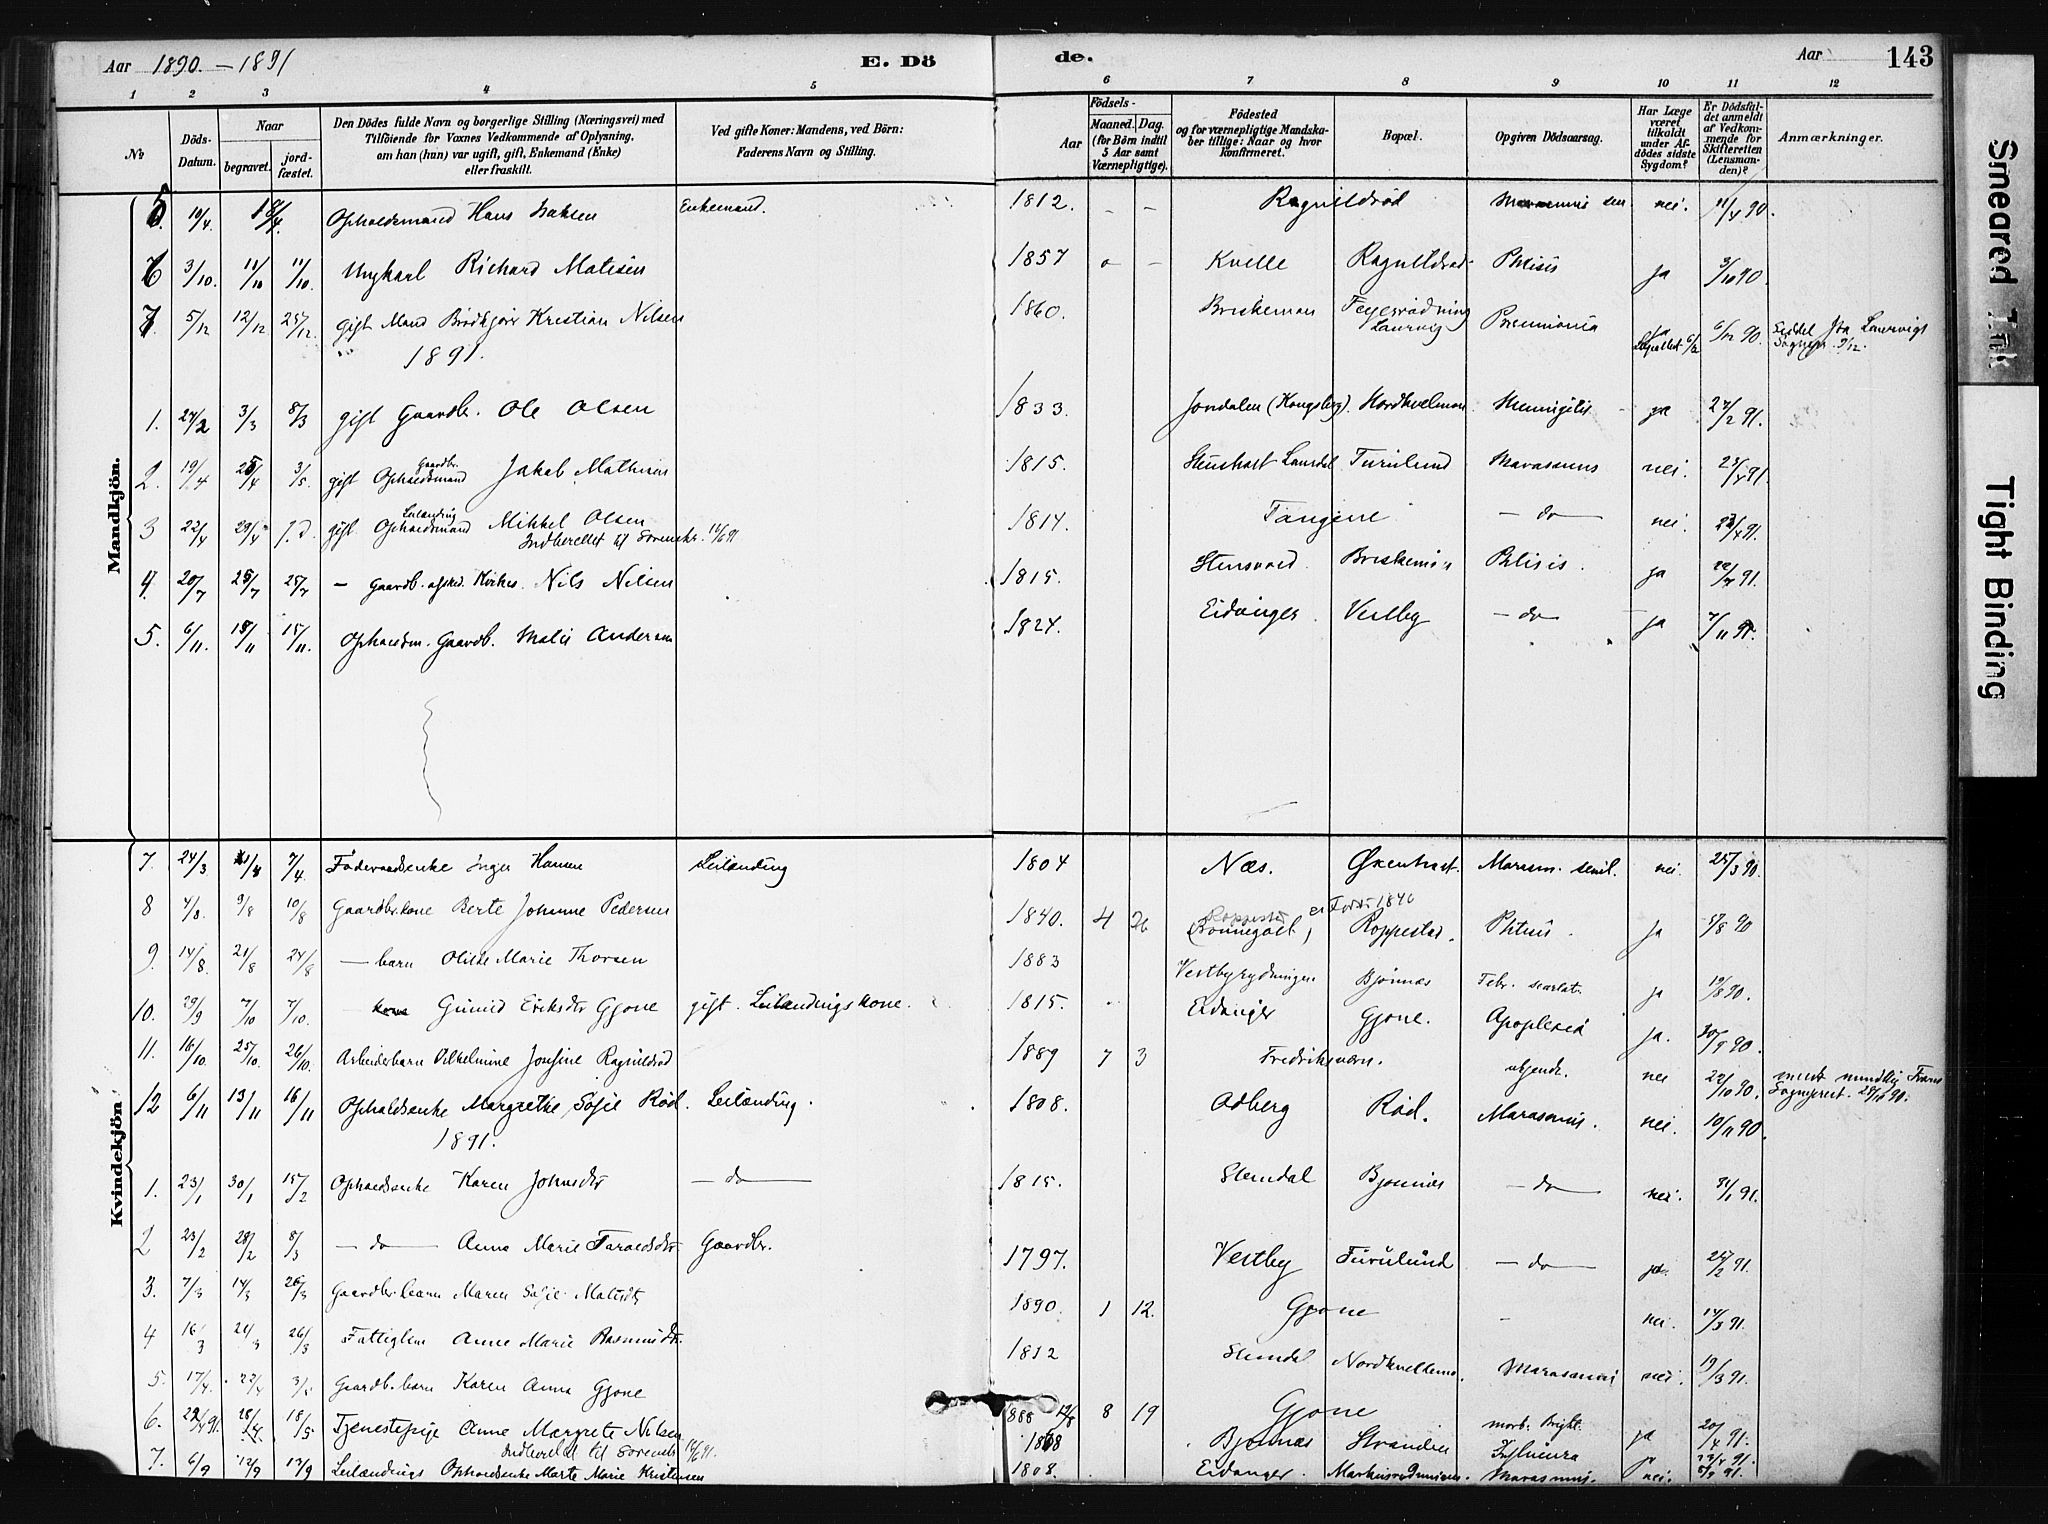 Aar 1890. — 1891
E. Dö
de.
Aar
143
1 2 3 4 5 6 7 8 9 10 11 12
No
Döds-Datum.
Naar
begravet.
jord-fæstet.
Den Dödes fulde Navn og borgerlige Stilling (Næringsvei) med
Tilföiende for Voxnes Vedkommende af Oplysning,
om han (hun) var ugift, gift, Enkemand (Enke)
eller fraskilt.
Ved gifte Koner: Mandens, ved Börn:
Faderens Navn og Stilling.
Aar
Födsels-
Maaned. Dag.
(for Börn indtil
5 Aar samt
Værnepligtige).
Födested
og for værnepligtige Mandska-
ber tillige: Naar og hvor
konfirmeret.
Bopæl.
Opgiven Dödsaarsag.
Har Læge
været
tilkaldt
under Af-
dödes sidste
Sygdom?
Er Dödsfal-
det anmeldt
af Vedkom-
mende for
Skifteretten
(Lensman-
den)?
Anmærkninger.
Mandkjön.
5. 10/4 18/4 Opholdsmand Hans Isaksen Enkemand. 1812. – – Ragnildröd sen nei. 11/4 90.
6 3/10. 11/10 11/10. Ungkarl Richard Matisen 1857 – Kvelle Ragnildröd Phtisis ja 3/10 90.
7 5/12 12/12 25/12. gift Mand Brödkjörer Kristian Nilsen 1860. Briskeman Laurvig Pneumonia ja 6/12 90. Seddel fra Laurvigs
1891.
1. 27/2 3/3 8/3 gift Gaardbr. Ole Olsen 1833. Jondalen (Kongsberg). Nordkvelman. Meningitis ja 27/2 91.
2. 19/4 25/4 3/5 gift Gaardbr. Opholdsmand Jakob Mathisen 1815. Laurdal Furulund Marasmus nei. 23/4 91.
3 22/4 29/4 J.d. gift Leilending Opholdsmand Mikkel Olsen 1814. Tangene — do — nei. 23/4 91.
Indberettet til Sorensk. 11/6 91
4. 20/7 25/7 25/7 — Gaardb. Nils Nilsen 1815. Stensvold Briskemän Phtisis. ja 22/7 91.
5. 6/11. 15/11 15/11. Opholdsm. Gaardb. Matis Andersen 1824. Eidanger. Vestby — do — ja 7/11 91
Kvindekjön
7. 24/3 7/4. Föderaadsenke Inger Hansen Leilending 1804 Næs. Öxenhast. Marasm. senil. nei. 25/3 90.
8 4/8. 9/8 10/8 Gaardbr.kone Berte Johanne Pedersen 1840. 4 26 Roppestad er Född 1840
Roppestad. Phtisis. ja 5/8 90
9. 14/8. 21/8 24/8 — barn Olilde Marie Thorsen 1883 Vestbyrydningen Bjönnes Febr. scarlat. ja 19/8 90.
10. 29/9 7/10 7/10. Gunild Eriksdtr Gjone gift. Leilendingskone. 1815. Eidanger Gjone. Apoplexia ja. 30/9 90.
11. 16/10. 25/10. 26/10. Arbeiderbarn Vilhelmine Josefine Ragnildröd 1889 7 3 Fredriksværn. ubjendt. nei 22/10 90. meldt mundtlig Frans
Sogneprest. 28/10 90.
12 6/11 13/11 16/11 Opholdsenke Margrethe Sofie Röd. Leilending. 1808. Odberg Röd. Marasmus. nei. 10/11 90.
1891.
1. 23/1 30/1 15/2 Opholdsenke Karen Johnsdtr — do — 1815. Stendal Bjönnes — do — nei. 31/1 91.
2 23/2 28/2 8/3 — do — Anna Marie Taraldsdtr. Gaardbr. 1797. Vestby Furulund — do — ja. 25/2 91.
3. 7/3 14/3 26/3 Gaardbr.barn Maren Sofie Matisdtr 1890. 1 12. Gjone – nei. 14/3 91.
4 16/3 21/3 26/3 Fattiglem Anne Marie Rasmusdtr. 1812 Stendal Nordkvellemo. Marasmus nei. 19/3 91.
5. 17/4. 22/4 3/5 Gaardb.barn Karen Anna Gjone 1888 12/8 8 19 Gjone morb. Bright. ja 20/4 91.
6. 22/4 91. 28/4. 18/5 Tjenestepige Anne Margrete Nilsen 1868 Bjönnes Stranden Influenza ja 22/4 91.
Indberettet til Sorensk. 11/6 91.
7. 6/9 12/9 13/9 Leilendings Opholdsenke Marte Marie Kristensen 1808. Eidanger. Marasmus. nei. 8/9 91.
Smeared Ink
Tight Binding